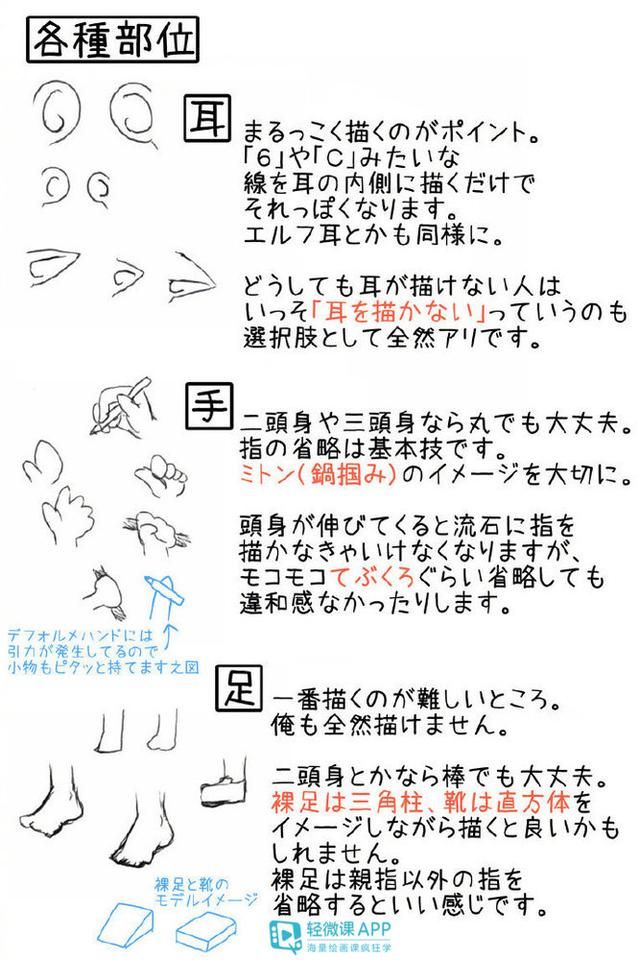 各種部位
耳
まるっこく描くのがポイント。
「6」や「C」みたいな
線を耳の内側に描くだけで
それっぽくなります。
エルフ耳とかも同様に。
どうしても耳が描けない人は
いっそ「耳を描かない」っていうのも
選択肢として全然アリです。
手
二頭身や三頭身なら丸でも大丈夫。
指の省略は基本技です。
ミトン(鍋掴み)のイメージを大切に。
頭身が伸びてくると流石に指を
描かなきゃいけなくなりますが、
モコモコてぶくろぐらい省略しても
違和感なかったりします。
デフォルメハンドには
引力が発生してるので
小物もピタッと持てます之図
足
一番描くのが難しいところ。
俺も全然描けません。
二頭身とかなら棒でも大丈夫。
裸足は三角柱、靴は直方体を
イメージしながら描くと良いかも
しれません。
裸足は親指以外の指を
省略するといい感じです。
裸足と靴の
モデルイメージ
轻微课APP
海量绘画课疯狂学